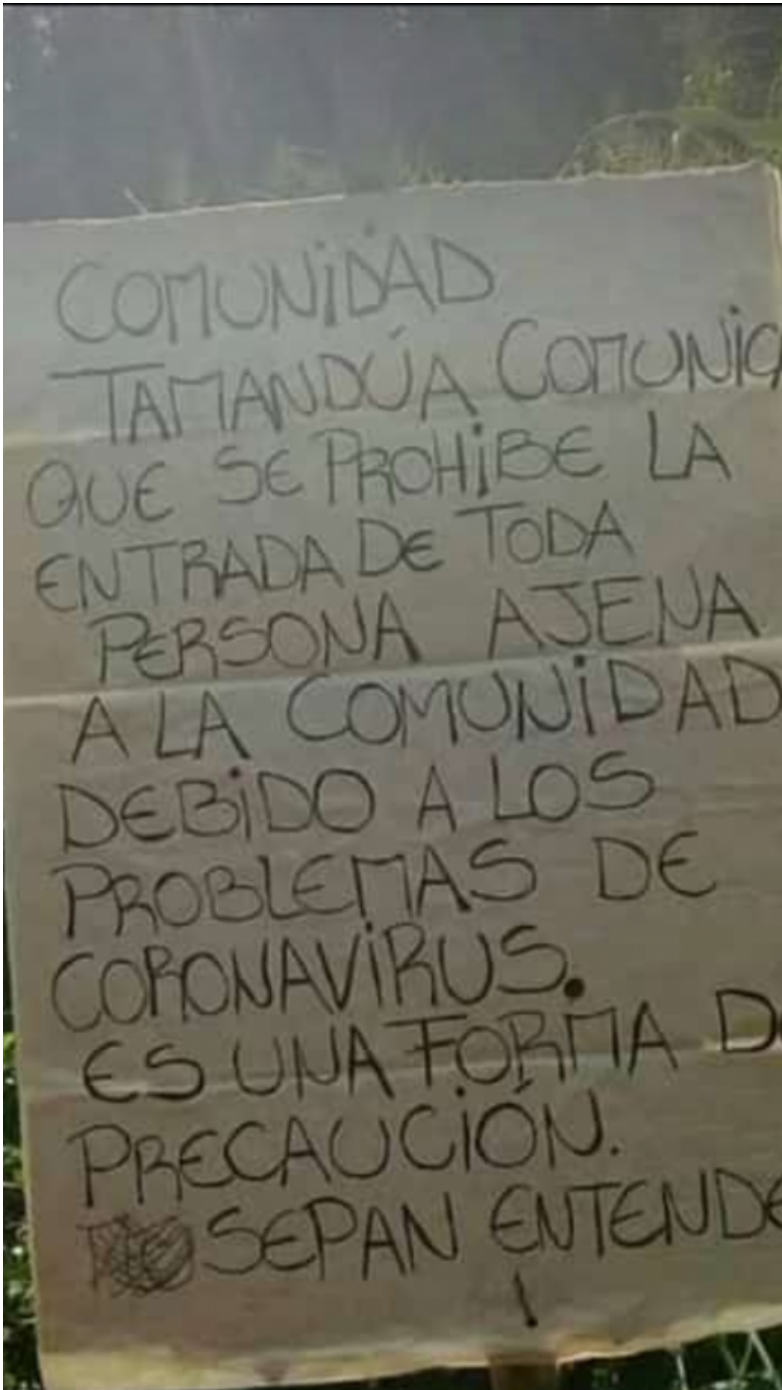 COMUNIDAD
TAMANDÚA COMUNICA
QUE SE PROHIBE LA
ENTRADA DE TODA
PERSONA AJENA
A LA COMUNIDAD
DEBIDO A LOS
PROBLEMAS DE
CORONAVIRUS.
ES UNA FORMA DE
PRECAUCIÓN.
SEPAN ENTENDE
!